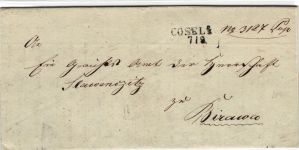 COSEL
7/8
No 3127
An
Ein
Amt der Herrschaft
Slawenzitz
zu
Birawa